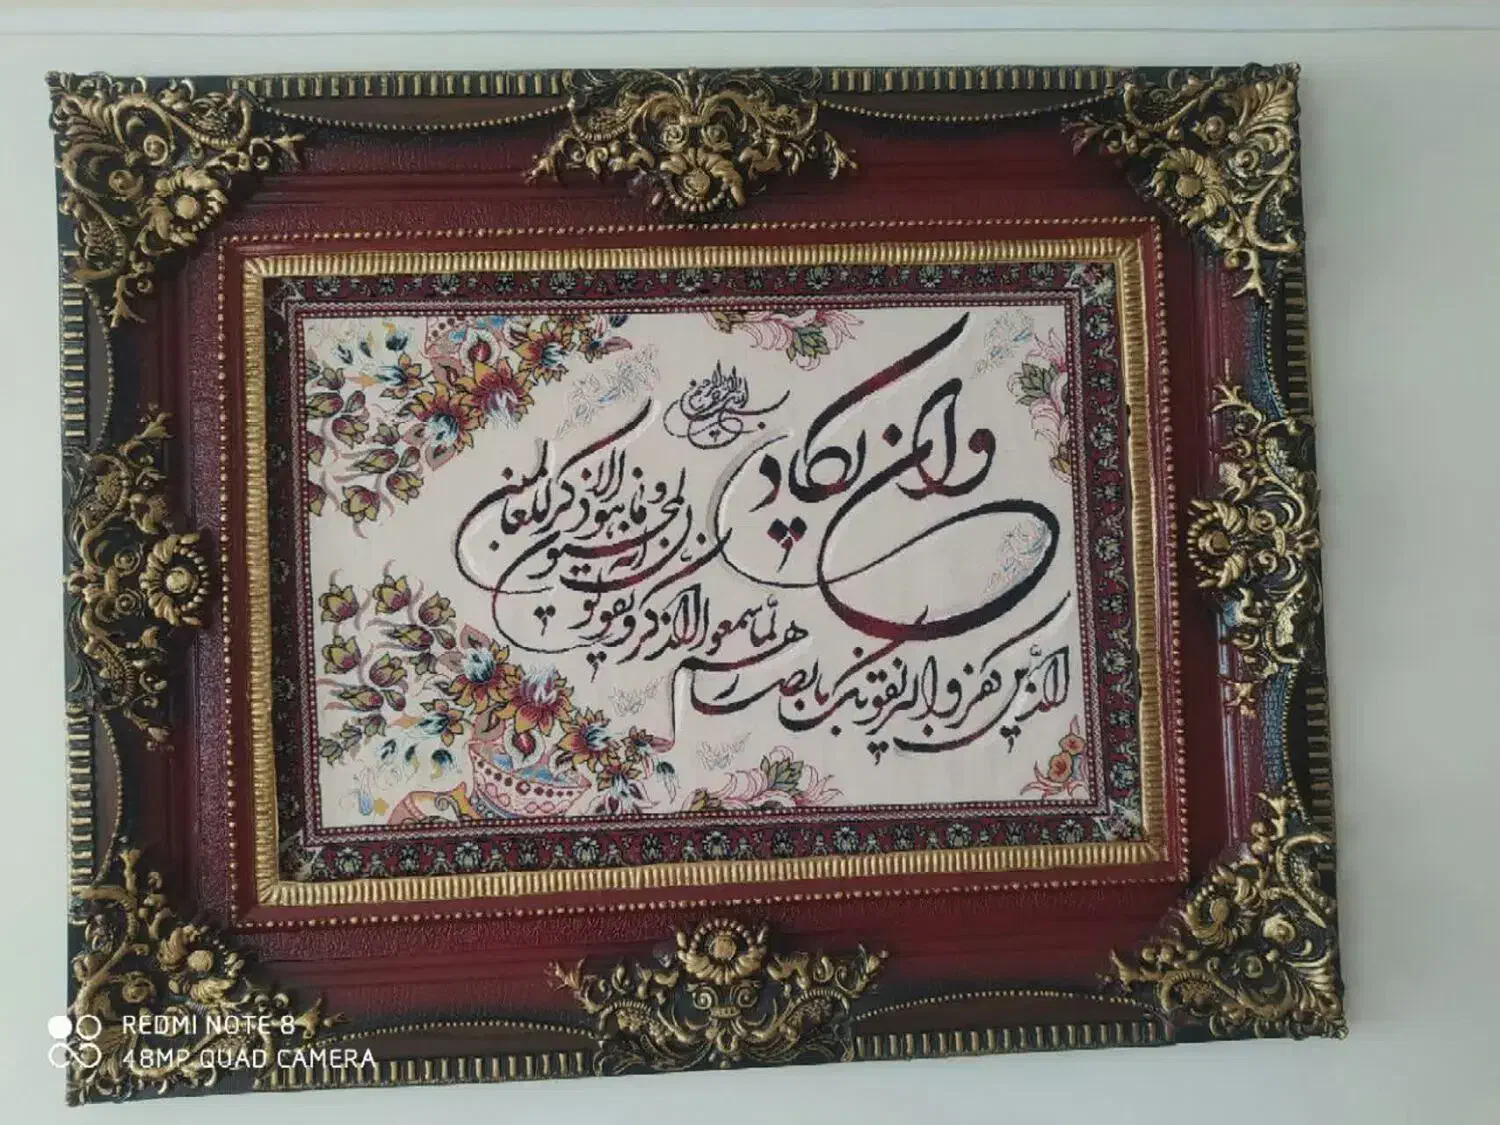 بسم الله الرحمن الرحیم
وان یکاد
الذین کفروا لیزلقونک بابصارهم
لما سمعوا الذکر و یقولون انه
لمجنون و ما هو الا ذکر للعالمین
REDMI NOTE 8
48MP QUAD CAMERA